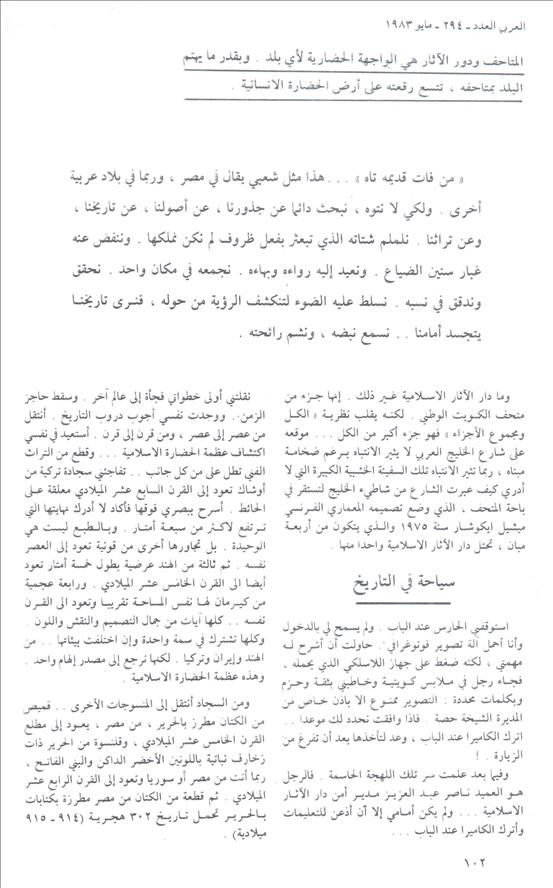 العربي العدد ـ ٢٩٤ ـ مايو ١٩٨٣
المتاحف ودور الآثار هي الواجهة الحضارية لأي بلد . وبقدر ما يهتم
البلد بمتاحفه ، تتسع رقعته على أرض الحضارة الانسانية .
« من فات قديمه تاه » . . . هذا مثل شعبي يقال في مصر ، وربما في بلاد عربية
أخرى . ولكي لا نتوه ، نبحث دائما عن جذورنا ، عن أصولنا ، عن تاريخنا ،
وعن تراثنا . نلملم شتاته الذي تبعثر بفعل ظروف لم نكن نملكها . وننفض عنه
غبار سنين الضياع . ونعيد إليه رواءه وبهاءه . نجمعه في مكان واحد . نحقق
وندقق في نسبه . نسلط عليه الضوء لتنكشف الرؤية من حوله ، فنرى تاريخنا
يتجسد أمامنا . . نسمع نبضه ، ونشم رائحته .
وما دار الآثار الاسلامية غير ذلك . إنها جزء من
متحف الكويت الوطني . لكنه يقلب نظرية « الكل
ومجموع الأجزاء » فهو جزء أكبر من الكل ... موقعه
على شارع الخليج العربي لا يثير الانتباه برغم ضخامة
مبناه ، ربما تثير الانتباه تلك السفينة الخشبية الكبيرة التي لا
أدري كيف عبرت الشارع من شاطيء الخليج لتستقر في
باحة المتحف ، الذي وضع تصميمه المعماري الفرنسي
ميشيل ايكوشار سنة ١٩٧٥ والذي يتكون من أربعة
مبان ، تحتل دار الآثار الاسلامية واحدا منها .
سياحة في التاريخ
استوقفني الحارس عند الباب . ولم يسمح لي بالدخول
وأنا أحمل آلة تصوير فوتوغرافي . حاولت أن أشرح له
مهمتي ، لكنه ضغط على جهاز اللاسلكي الذي يحمله ،
فجاء رجل في ملابس كويتية وخاطبني بثقة وحزم
وبكلمات محددة : التصوير ممنوع الا باذن خاص من
المديرة الشيخة حصة . فاذا وافقت نحدد لك موعدا . .
اترك الكاميرا عند الباب ، وعد لتأخذها بعد أن تفرغ من
الزيارة . !
وفيما بعد علمت سر تلك اللهجة الحاسمة . فالرجل
هو العميد ناصر عبد العزيز مدير أمن دار الآثار
الاسلامية ... ولم يكن أمامي إلا أن أذعن للتعليمات
وأترك الكاميرا عند الباب ...
نقلتني أولى خطواتي فجأة إلى عالم آخر . وسقط حاجز
الزمن . ووجدت نفسي أجوب دروب التاريخ . أنتقل
من عصر إلى عصر ، ومن قرن إلى قرن . أستعيد في نفسي
اكتشاف عظمة الحضارة الاسلامية ... وقطع من التراث
الفني تطل على من كل جانب .. تفاجئني سجادة تركية من
أوشاك تعود إلى القرن السابع عشر الميلادي معلقة على
الحائط . أسرح ببصري فوقها فأكاد لا أدرك نهايتها التي
ترتفع لاكثر من سبعة أمتار . وبالطبع ليست هي
الوحيدة . بل تجاورها أخرى من قونية تعود إلى العصر
نفسه . ثم ثالثة من الهند عرضية بطول خمسة أمتار تعود
أيضا الى القرن الخامس عشر الميلادي . ورابعة عجمية
من كيرمان لها نفس المساحة تقريبا وتعود الى القرن
نفسه .. كلها آيات من جمال التصميم والنقش واللون .
وكلها تشترك في سمة واحدة وإن اختلفت بيئاتها .. من
الهند وإيران وتركيا . لكنها ترجع إلى مصدر إلهام واحد .
وهذه عظمة الحضارة الاسلامية .
ومن السجاد أنتقل إلى المنسوجات الأخرى .. قميص
من الكتان مطرز بالحرير ، من مصر ، يعود إلى مطلع
القرن الخامس عشر الميلادي ، وقلنسوة من الحرير ذات
زخارف نباتية باللونين الأخضر الداكن والبني الفاتح ،
ربما أتت من مصر أو سوريا وتعود إلى القرن الرابع عشر
الميلادي . ثم قطعة من الكتان من مصر مطرزة بكتابات
بالحرير تحمل تاريخ ٣٠٢ هجرية (٩١٤ ـ ٩١٥
ميلادية) .
١٠٢